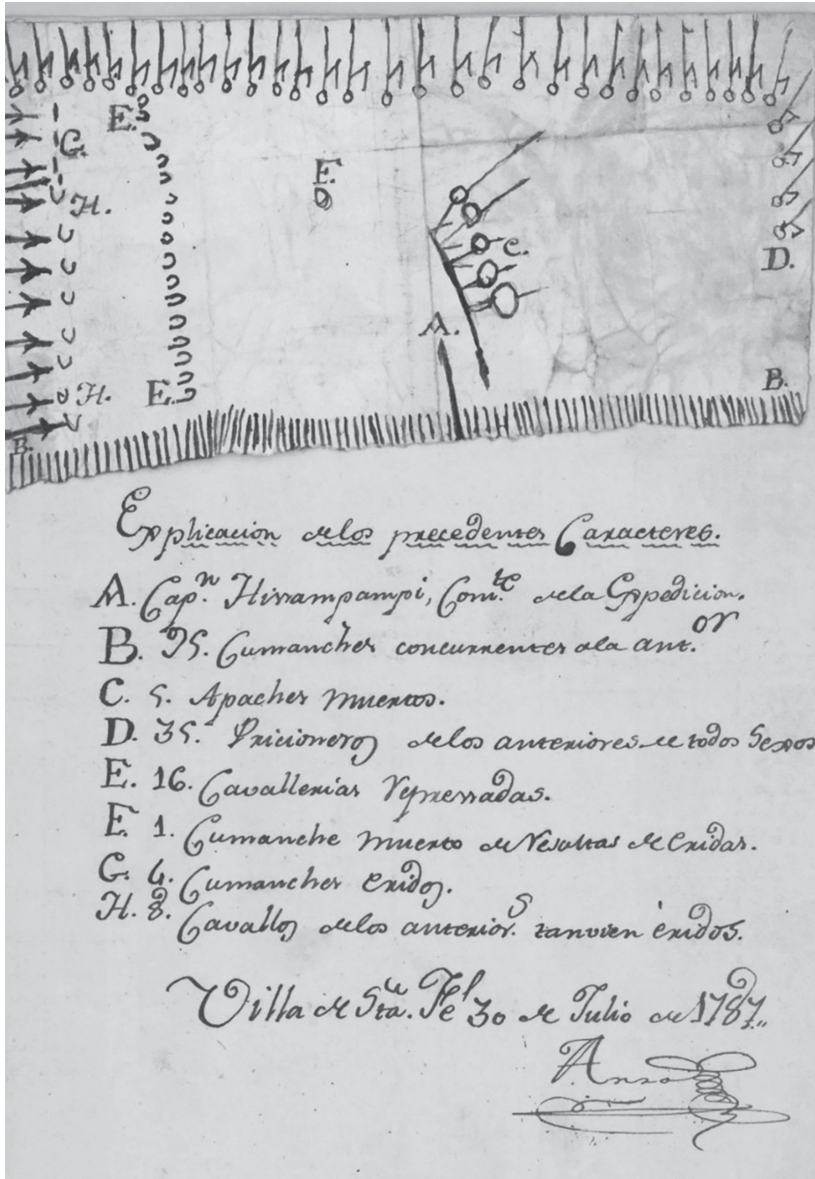 E.
G.
H.
F.
C.
D.
A.
H.
E.
B.
B.
Explicacion delos precedentes Caracteres.
A. Cap.n Hirrampampi, Com.te dela Expedicion.
B. 95. Cumanches concurrentes ala ant.or
C. 5. Apaches muertos.
D. 35. Pricioneros delos anteriores de todos Sexos
E. 16. Cavallerias Represadas.
F. 1. Cumanche muerto de Resultas de eridas.
G. 4. Cumanches eridos.
H. 8. Cavallos delos anterior.s tanvien éridos.
Villa de Sta. Fe 30 de Julio de 1787
Anza